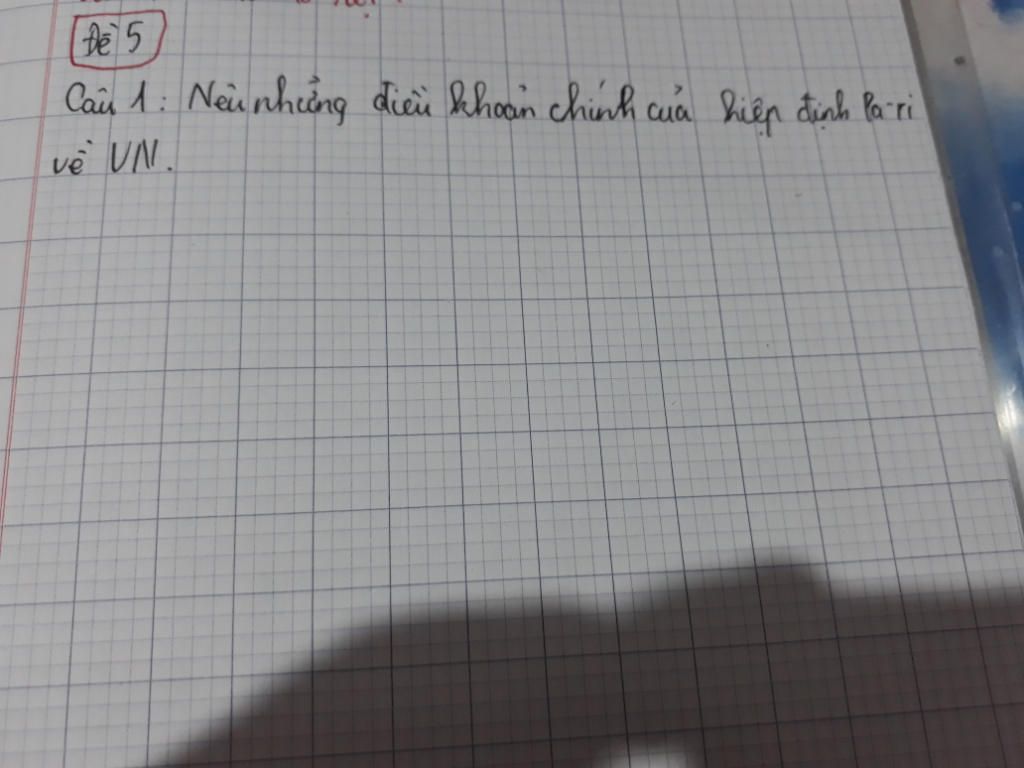 Đề 5
Câu 1: Nêu những điều khoản chính của hiệp định Pa-ri
về VN.